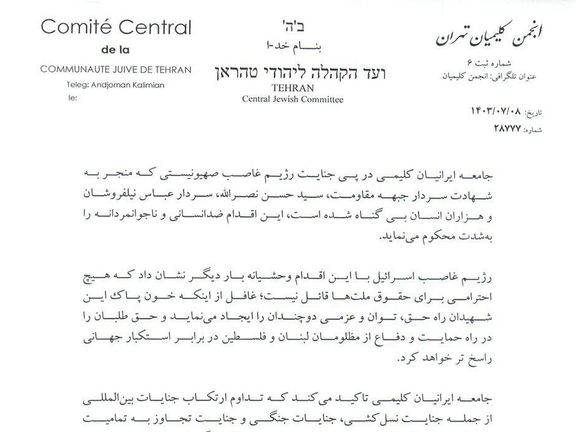 Comité Central
de la
COMMUNAUTE JUIVE DE TEHRAN
Teleg: Andjoman Kalimian
le:
ב'ה'
بنام خد-ا
ועד הקהלה ליהודי טהראן
TEHRAN
Central Jewish Committee
انجمن کلیمیان تهران
شماره ثبت ۶
عنوان تلگرافی: انجمن کلیمیان
تاریخ: ۱۴۰۳/۰۷/۰۸
شماره: ۲۸۷۷۷
جامعه ایرانیان کلیمی در پی جنایت رژیم غاصب صهیونیستی که منجر به
شهادت سردار جبهه مقاومت، سید حسن نصرالله، سردار عباس نیلفروشان
و هزاران انسان بی گناه شده است، این اقدام ضدانسانی و ناجوانمردانه را
به‌شدت محکوم می‌نماید.
رژیم غاصب اسرائیل با این اقدام وحشیانه بار دیگر نشان داد که هیچ
احترامی برای حقوق ملت‌ها قائل نیست؛ غافل از اینکه خون پاک این
شهیدان راه حق، توان و عزمی دوچندان را ایجاد می‌نماید و حق طلبان را
در راه حمایت و دفاع از مظلومان لبنان و فلسطین در برابر استکبار جهانی
راسخ تر خواهد کرد.
جامعه ایرانیان کلیمی تاکید می‌کند که تداوم ارتکاب جنایات بین‌المللی
از جمله جنایت نسل‌کشی، جنایات جنگی و جنایت تجاوز به تمامیت